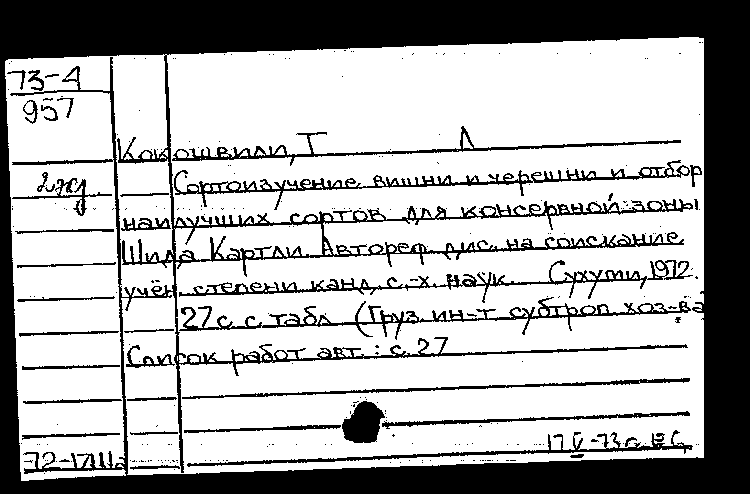 73-4
957
Кокошвили, Т Л
2 экз. Сортоизучение вишни и черешни и отбор
наилучших сортов для консервной зоны
Шида Картли. Автореф. дис. на соискание
учён. степени канд. с.-х. наук. Сухуми, 1972.
27 с. с табл. (Груз. ин-т субтроп. хоз-ва)
Список работ авт.: с. 27
17 V-73 г.